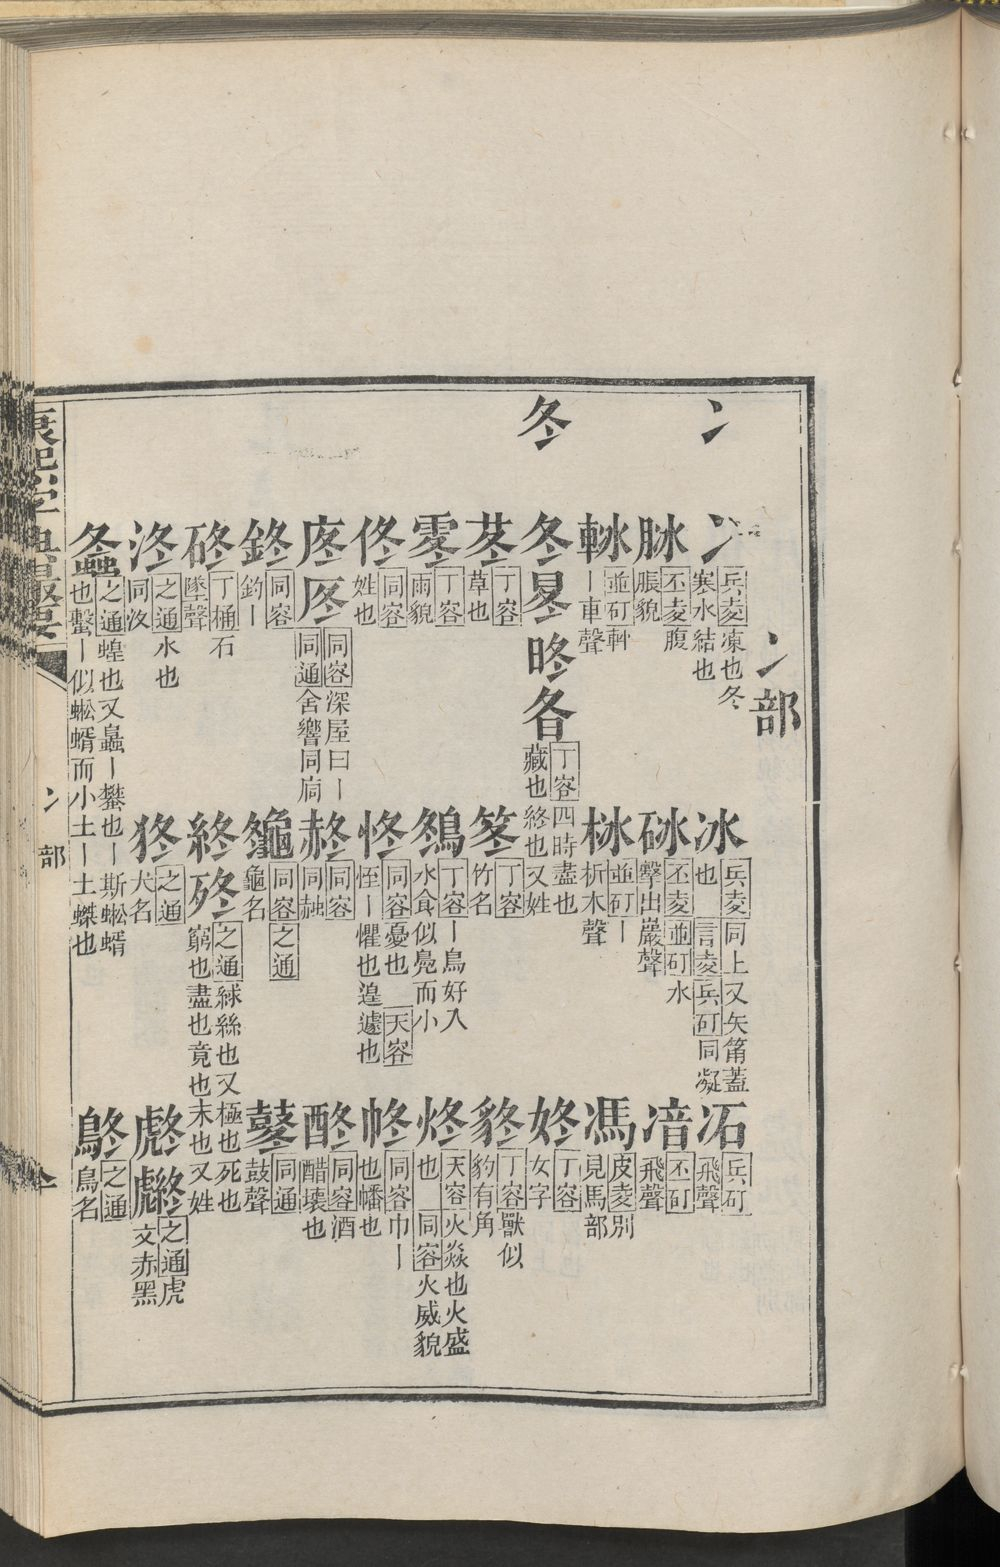 冫部
冫
冫 兵夌凍也冬寒水結也
冰 兵夌同上又矢箭蓋也 言夌 兵矴同凝
冱 兵矴飛聲
脉 丕夌腹脹貌
砯 丕夌 並矴水擊出巖聲
湆 丕矴飛聲
軪 並矴軯丨車聲
栤 並矴丨析木聲
馮 皮夌別見馬部
冬
冬 㫡 昸 各 丁容四時盡也藏也終也又姓
㚵 丁容女字
苳 丁容草也
笗 丁容竹名
豵 丁容獸似豹有角
霿 丁容雨貌
鴤 丁容丨鳥好入水食似鳧而小
炵 天容火焱也火盛也 同容火威貌
佟 同容姓也
怸 同容憂也 天容恎丨懼也遑遽也
㠽 同容巾丨也幡也
庝 㕂 同容深屋曰丨 同通舍響同㢥
赨 同容同赩
酨 同容酒醋壞也
鉖 同容釣丨
龝 同容 之通龜名
鼕 同通鼓聲
硶 丁桶石墜聲
終 歾 之通絿絲也又極也死也窮也盡也竟也末也又姓
泈 之通水也同汷
狪 之通犬名
彪 之通虎文赤黑
螽 之通蝗也又螽丨蠜也丨斯蜙蝑也蟿丨似蜙蝑而小土丨土蟒也
鴤 之通鳥名
康熙字典撮要
冫部